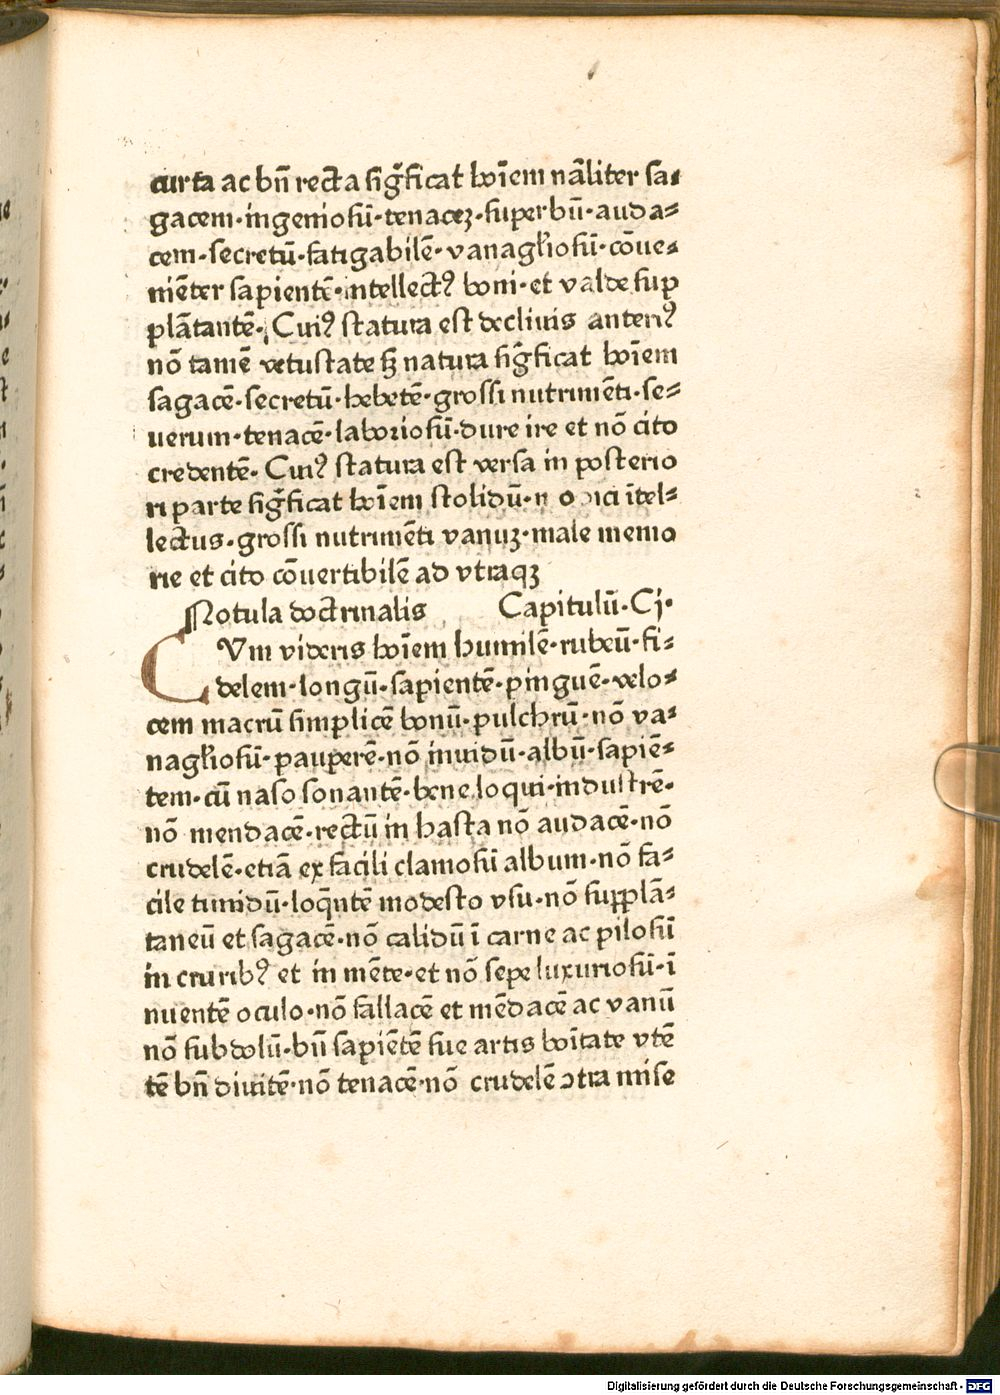 curta ac bn̄ recta sig̃ficat hoīem nãliter sa⸗
gacem·ingeniosū·tenacez·superbū·auda⸗
cem·secretū·fatigabilē·vanagl̄iosū·cōue⸗
niēter sapientē·intellectꝰ boni·et valde sup
plātantē· Cuiꝰ statura est decliuis anteriꝰ
nō tamē vetustate sꝫ natura sig̃ficat hoīem
sagacē·secretū·hebetē·grossi nutrimēti·se⸗
uerum·tenacē·laboriosū·dure ire et nō cito
credentē· Cuiꝰ statura est versa in posterio
ri parte sig̃ficat hoīem stolidū· ītel⸗
lectus·grossi nutrimēti vanuz·male memo
rie et cito cōuertibilē ad vtraqꝫ
Notula doctrinalis Capitulū·Cj·
CVm videris hoīem humilē·rubeū·fi⸗
delem·longū·sapientē·pinguē·velo⸗
cem macrū simplicē bonū·pulchrū·nō va⸗
nagl̄iosū·pauperē·nō inuidū·albū·sapiē⸗
tem·cū naso sonantē·bene loqui·industrē·
nō mendacē·rectū in hasta nō audacē·nō
crudelē·etiā ex facili clamosū album·nō fa⸗
cile timidū·loq̄ntē modesto vsu·nō supplā⸗
taneū et sagacē·nō calidū ī carne ac pilosū
in cruribꝰ et in mēte·et nō sepe luxuriosū·ī
nuentē oculo·nō fallacē et mēdacē ac vanū
nō subdolū·bn̄ sapiētē sue artis boītate vtē
tē bn̄ diuitē·nō tenacē·nō crudelē ꝯtra mise
Digitalisierung gefördert durch die Deutsche Forschungsgemeinschaft - DFG